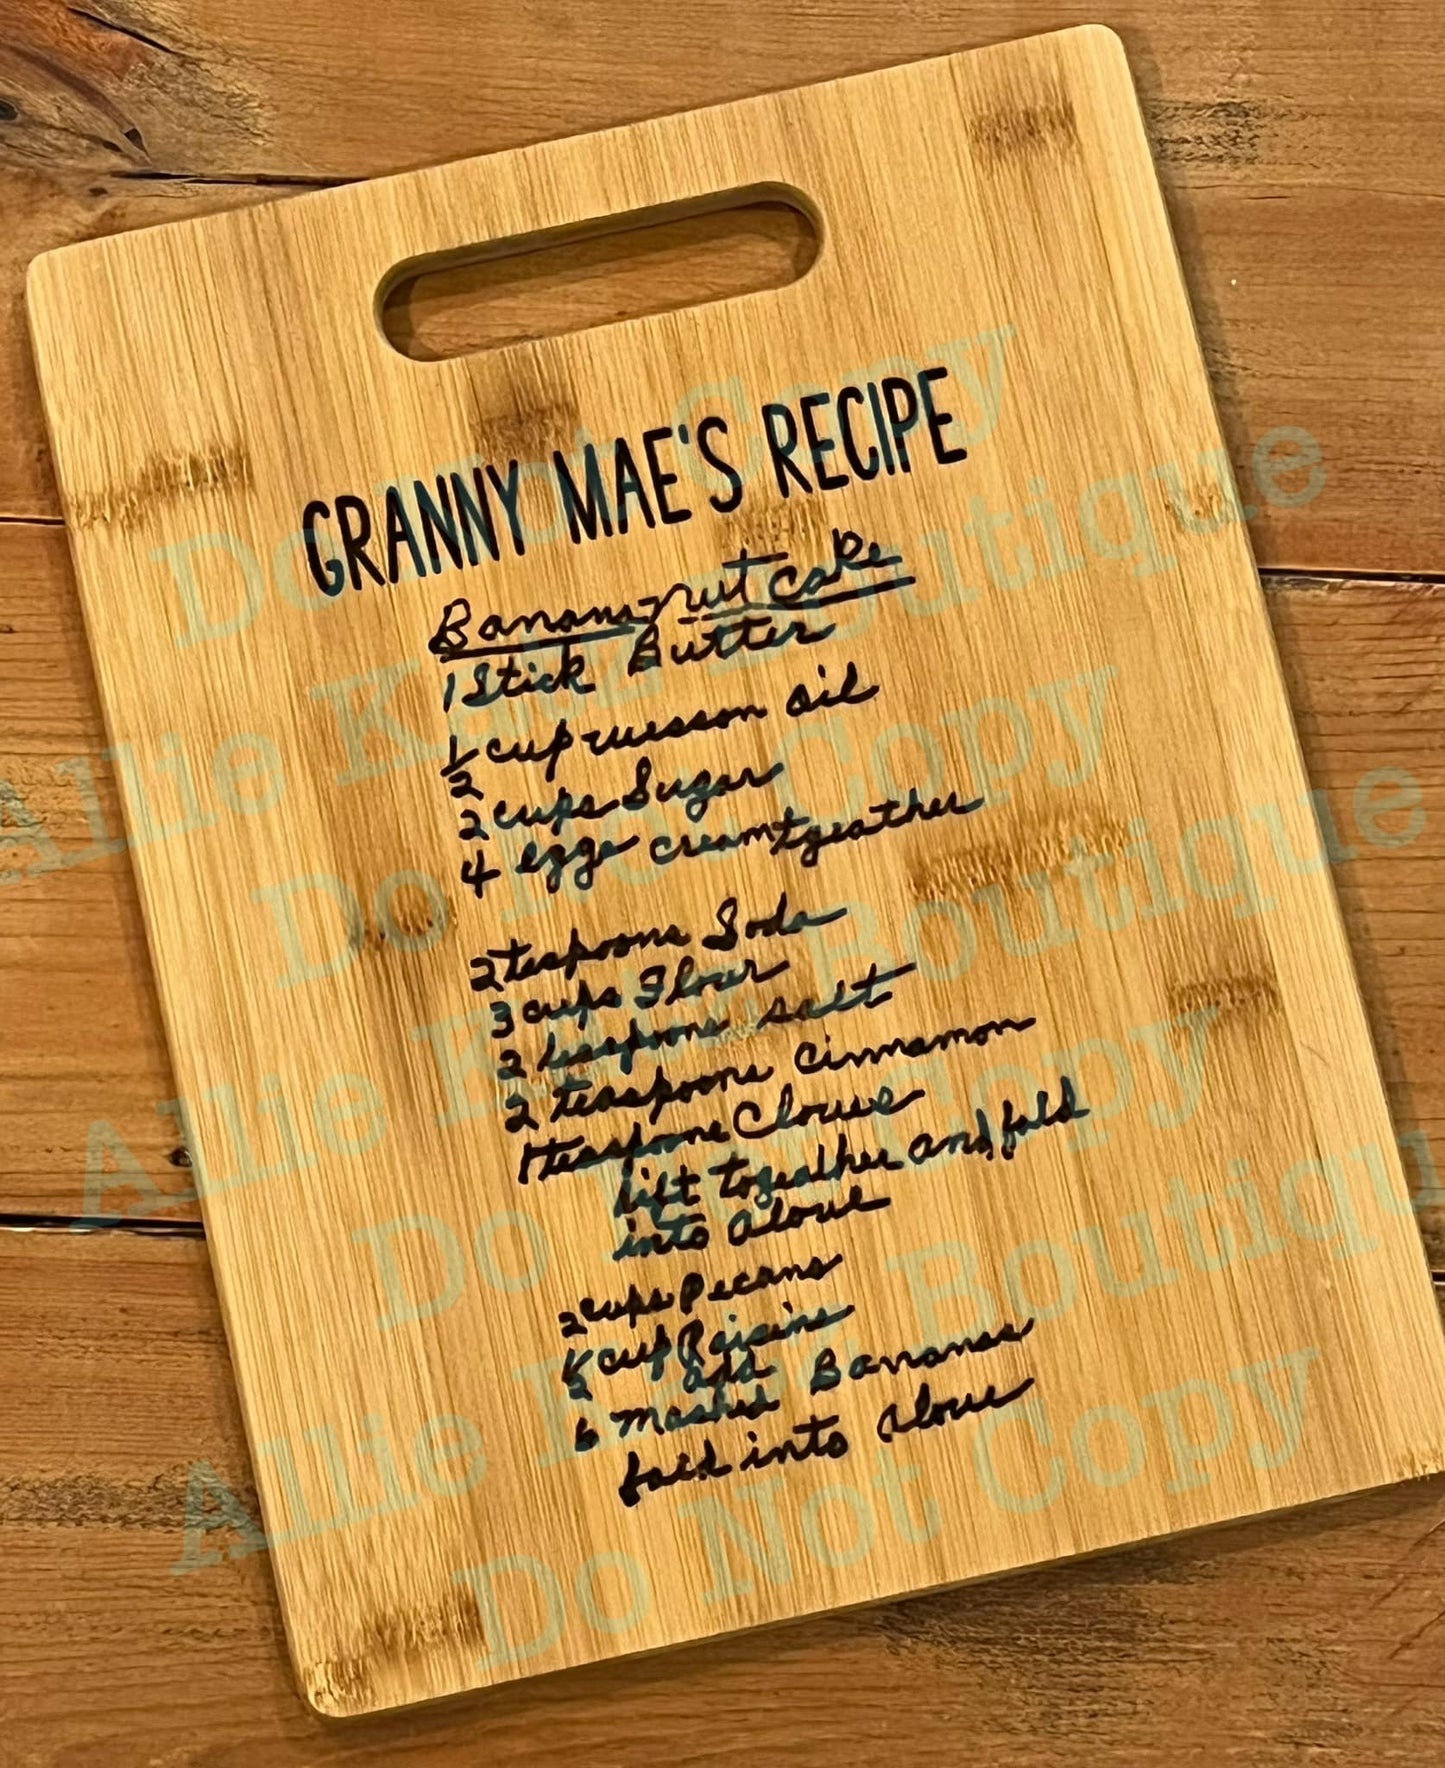 GRANNY MAE'S RECIPE
Banana-nut cake
1 Stick Butter
1/2 cup wesson oil
2 cups Sugar
4 eggs cream tgeather
2 teaspoons Soda
3 cups Flour
2 teaspoons salt
2 teaspoons cinnamon
1 teaspoons Clouve
sift togeather and fold
into aloue
2 cups Pecans
1/2 cup Raisins
add
6 mashed Bananas
fold into aloue
Do Not Copy
Allie Kayz Boutique
Do Not Copy
Allie Kayz Boutique
Do Not Copy
Allie Kayz Boutique
Do Not Copy